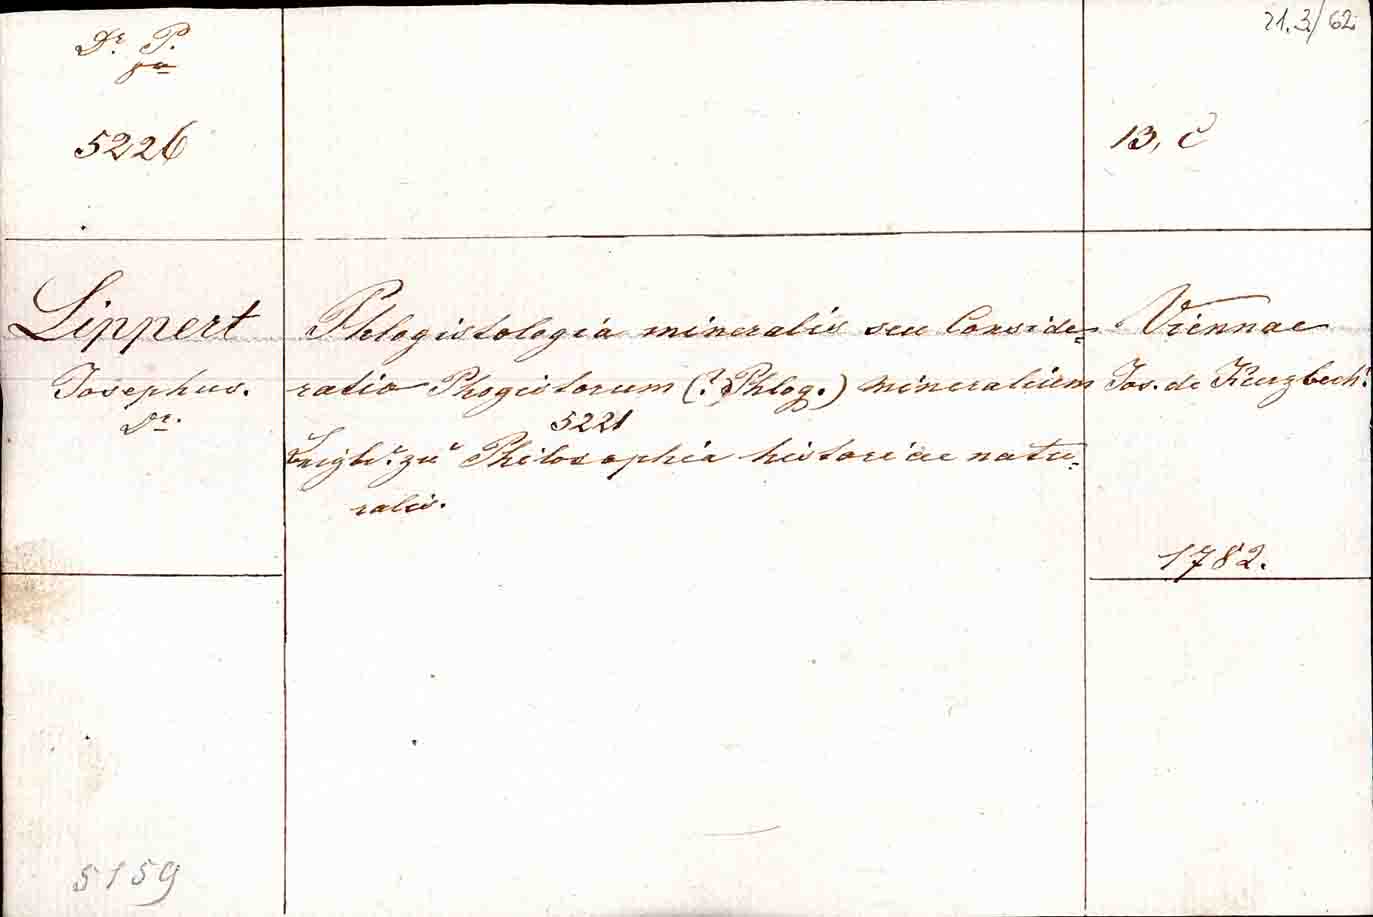 Dr. P.
5226
21.3./62.
13, C
Lippert
Josephus.
Dr.
Phlogistologia mineralis seu Conside=
ratio Phogistorum (? Phlog.) mineralium
5221
zu Philosophia historiae natu=
ralis.
Viennae
Jos. de Kurzbech.
1782.
5159